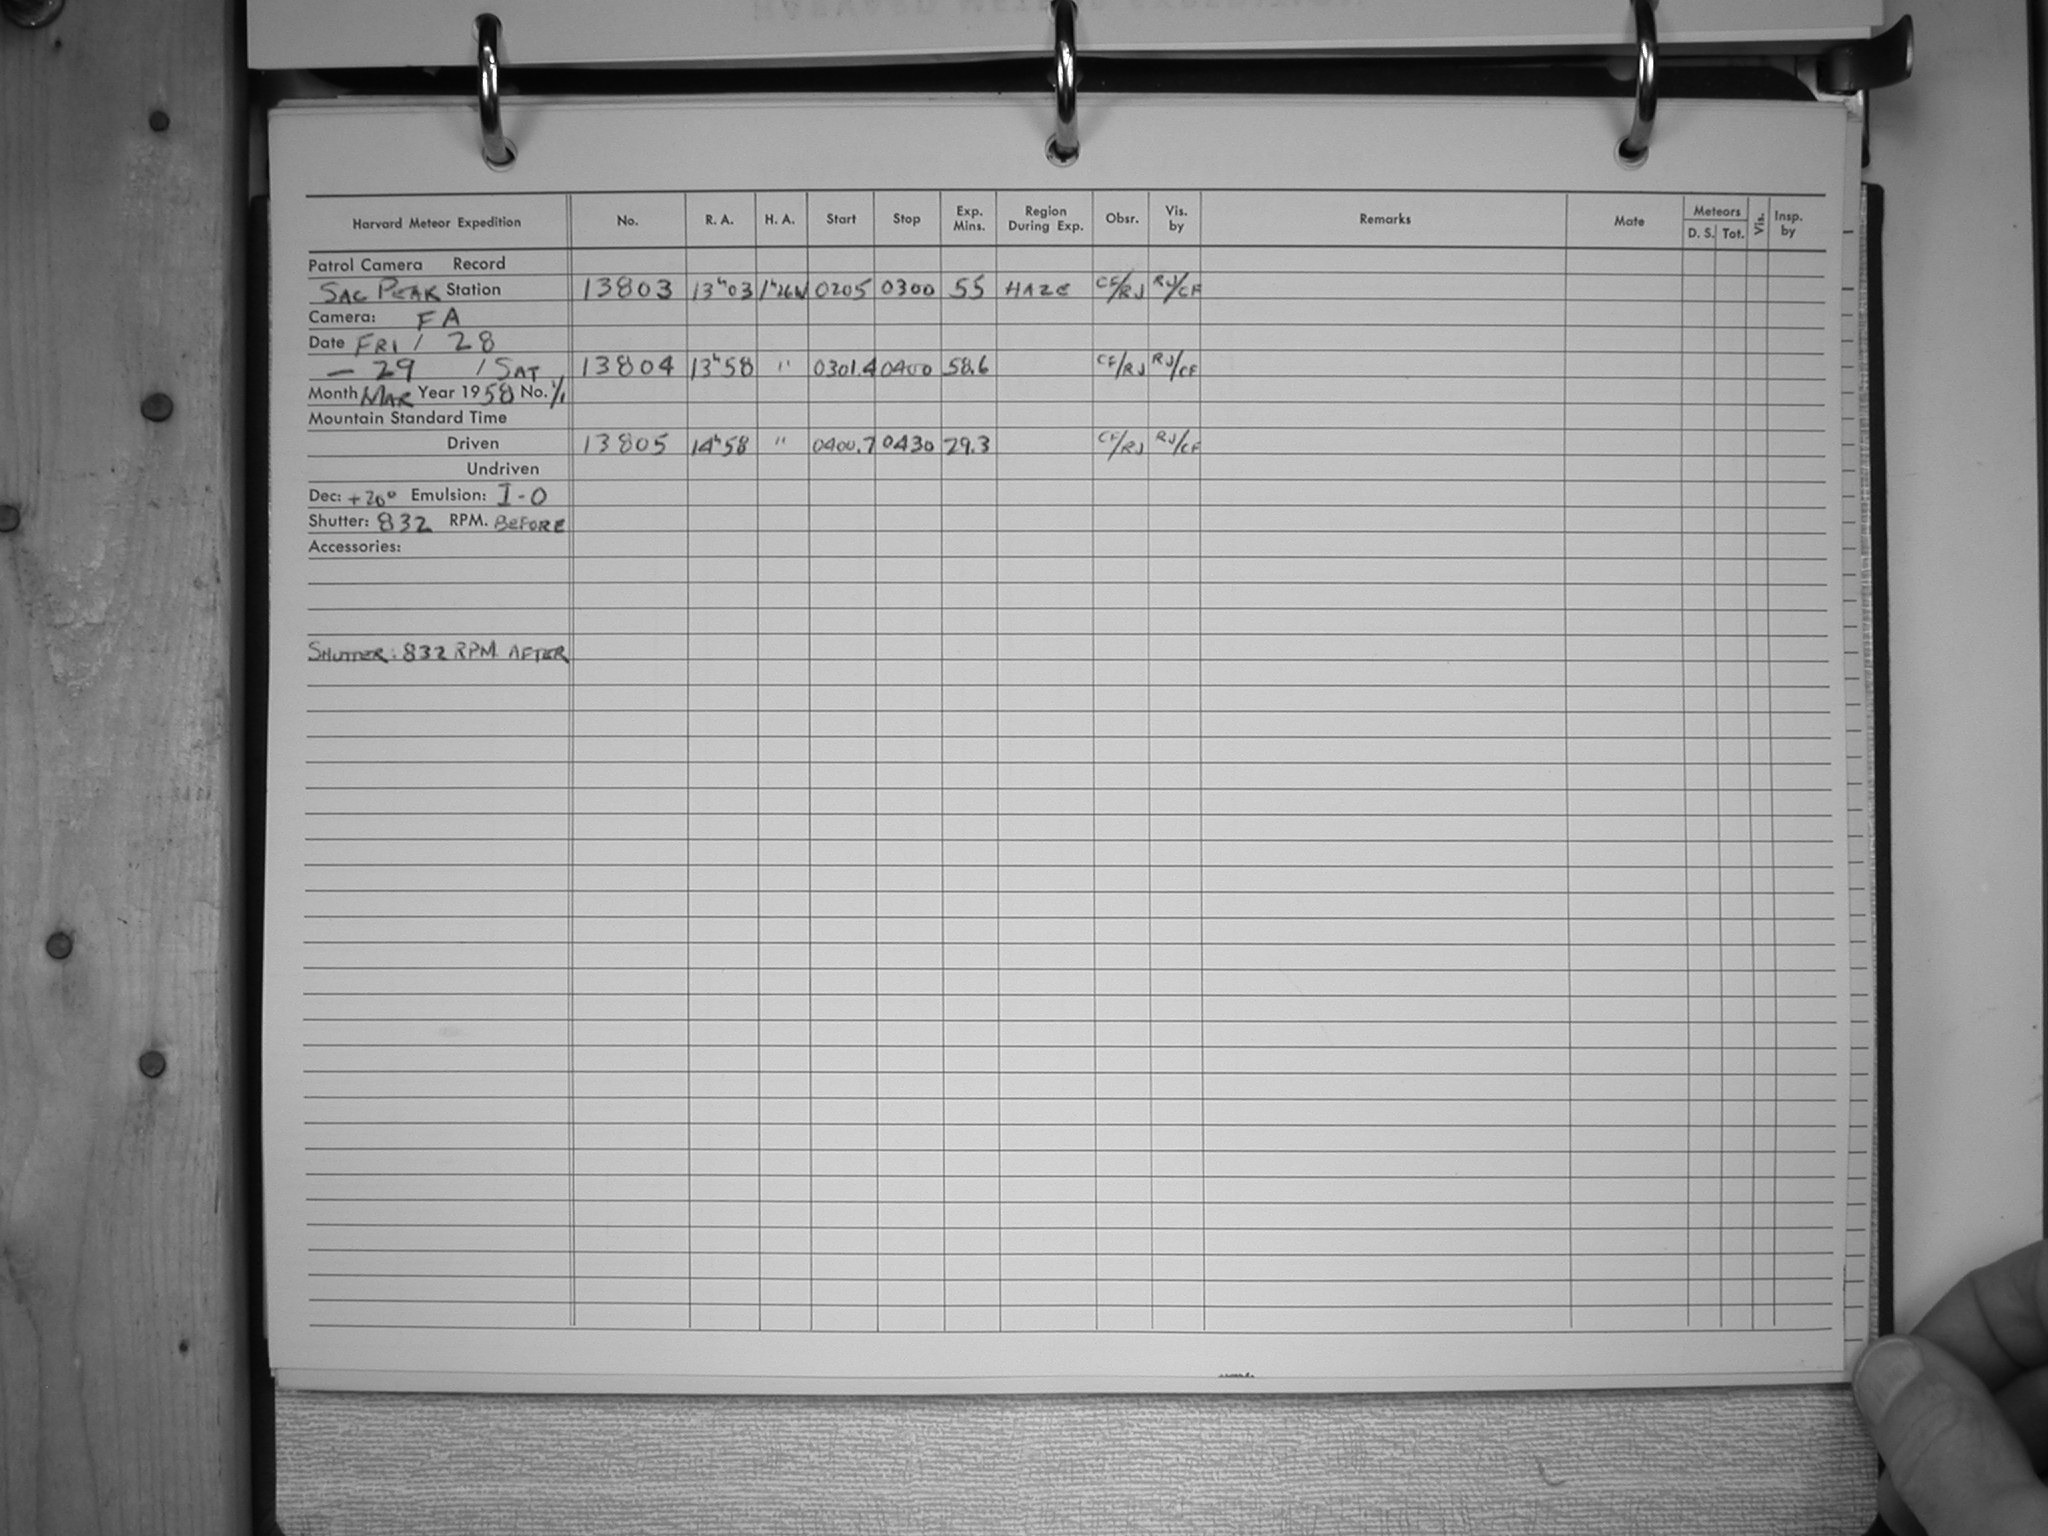 Harvard Meteor Expedition No. R. A. H. A. Start Stop Exp. Mins. Region During Exp. Obsr. Vis. by Remarks Mate Meteors D. S. Tot. Vis. Insp. by
Patrol Camera Record
SAC PEAK Station 13803 13ʰ03 1ʰ26W 0205 0300 55 HAZE CF/RJ RJ/CF
Camera: FA
Date FRI / 28
— 29 / SAT 13804 13ʰ58 " 0301.4 0400 58.6 CF/RJ RJ/CF
Month MAR Year 1958 No. 1/1
Mountain Standard Time
Driven 13805 14ʰ58 " 0400.7 0430 29.3 CF/RJ RJ/CF
Undriven
Dec: +20° Emulsion: I-O
Shutter: 832 RPM. BEFORE
Accessories:
SHUTTER: 832 RPM. AFTER